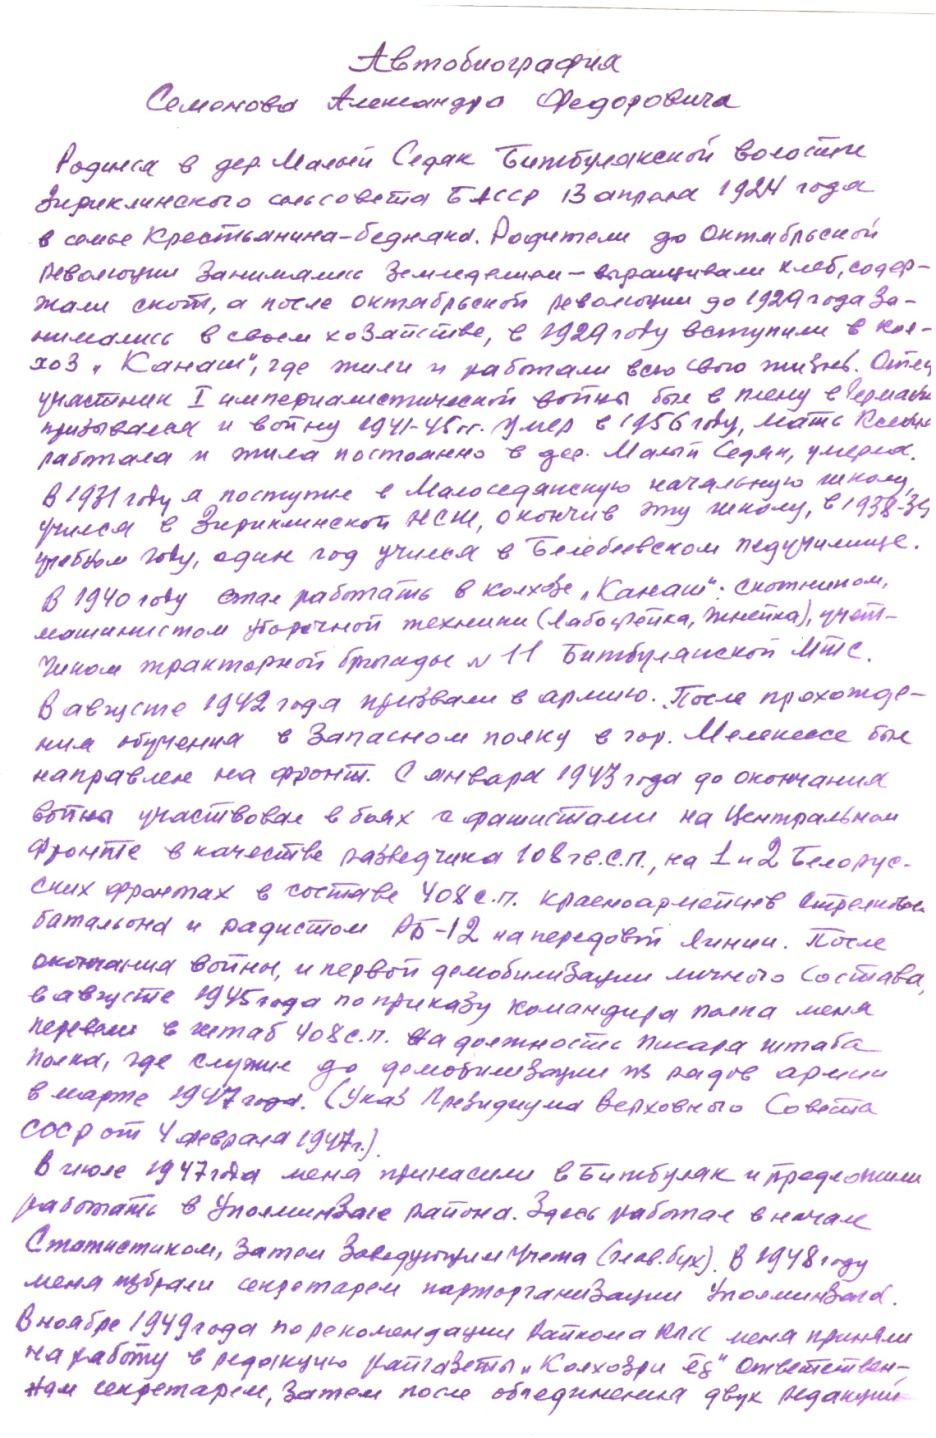 Автобиография
Семенова Александра Федоровича
Родился в дер Малый Седяк Бижбулякской волости
Зириклинского сельсовета БАССР 13 апреля 1924 года
в семье Крестьянина-бедняка. Родители до Октябрьской
революции занимались Земледелием – выращивали хлеб, содер-
жали скот, а после октябрьской революции до 1929 года за-
нимались в своем хозяйстве, в 1929 году вступили в кол-
хоз „Канаш", где жили и работали всю свою жизнь. Отец
участник I империалистической войны был в плену в Германии
призывался и войну 1941-45 гг. Умер в 1956 году, мать
работала и жила постоянно в дер. Малый Седяк, умерла.
В 1931 году я поступил в Малоседякскую начальную школу,
учился в Зириклинской НСШ, окончив эту школу, в 1938-39
учебном году, один год учился в Белебеевском педучилище.
В 1940 году стал работать в колхозе „Канаш": скотником,
машинистом уборочной техники (лабогрейка, жнейка), учет-
чиком тракторной бригады № 11 Бижбулякской МТС.
В августе 1942 года призвали в армию. После прохожде-
ния обучения в Запасном полку в гор. Мелекессе был
направлен на фронт. С января 1943 года до окончания
войны участвовал в боях с фашистами на Центральном
Фронте в качестве разведчика 108 гв.с.п., на 1 и 2 Белорус-
ских фронтах в составе 408 с.п. красноармейцев стрелковой
батальона и радистом РБ-12 на передовой линии. После
окончания войны, и первой демобилизации личного состава,
в августе 1945 года по приказу командира полка меня
перевели в штаб 408 с.п. на должность писаря штаба
полка, где служил до демобилизации из рядов армии
в марте 1947 года. (Указ Президиума Верховного Совета
СССР от 4 февраля 1947 г.).
В июле 1947 года меня пригласили в Бижбуляк и предложили
работать в Уполминзаге района. Здесь работал в начале
Статистиком, затем Заведующим учета (глав.бух). В 1948 году
меня избрали секретарем парторганизации Уполминзага.
В ноябре 1949 года по рекомендации Райкома КПСС меня приняли
на работу в редакцию райгазеты „Колхозри ĕç" ответствен-
ным секретарем, затем после объединения двух редакций